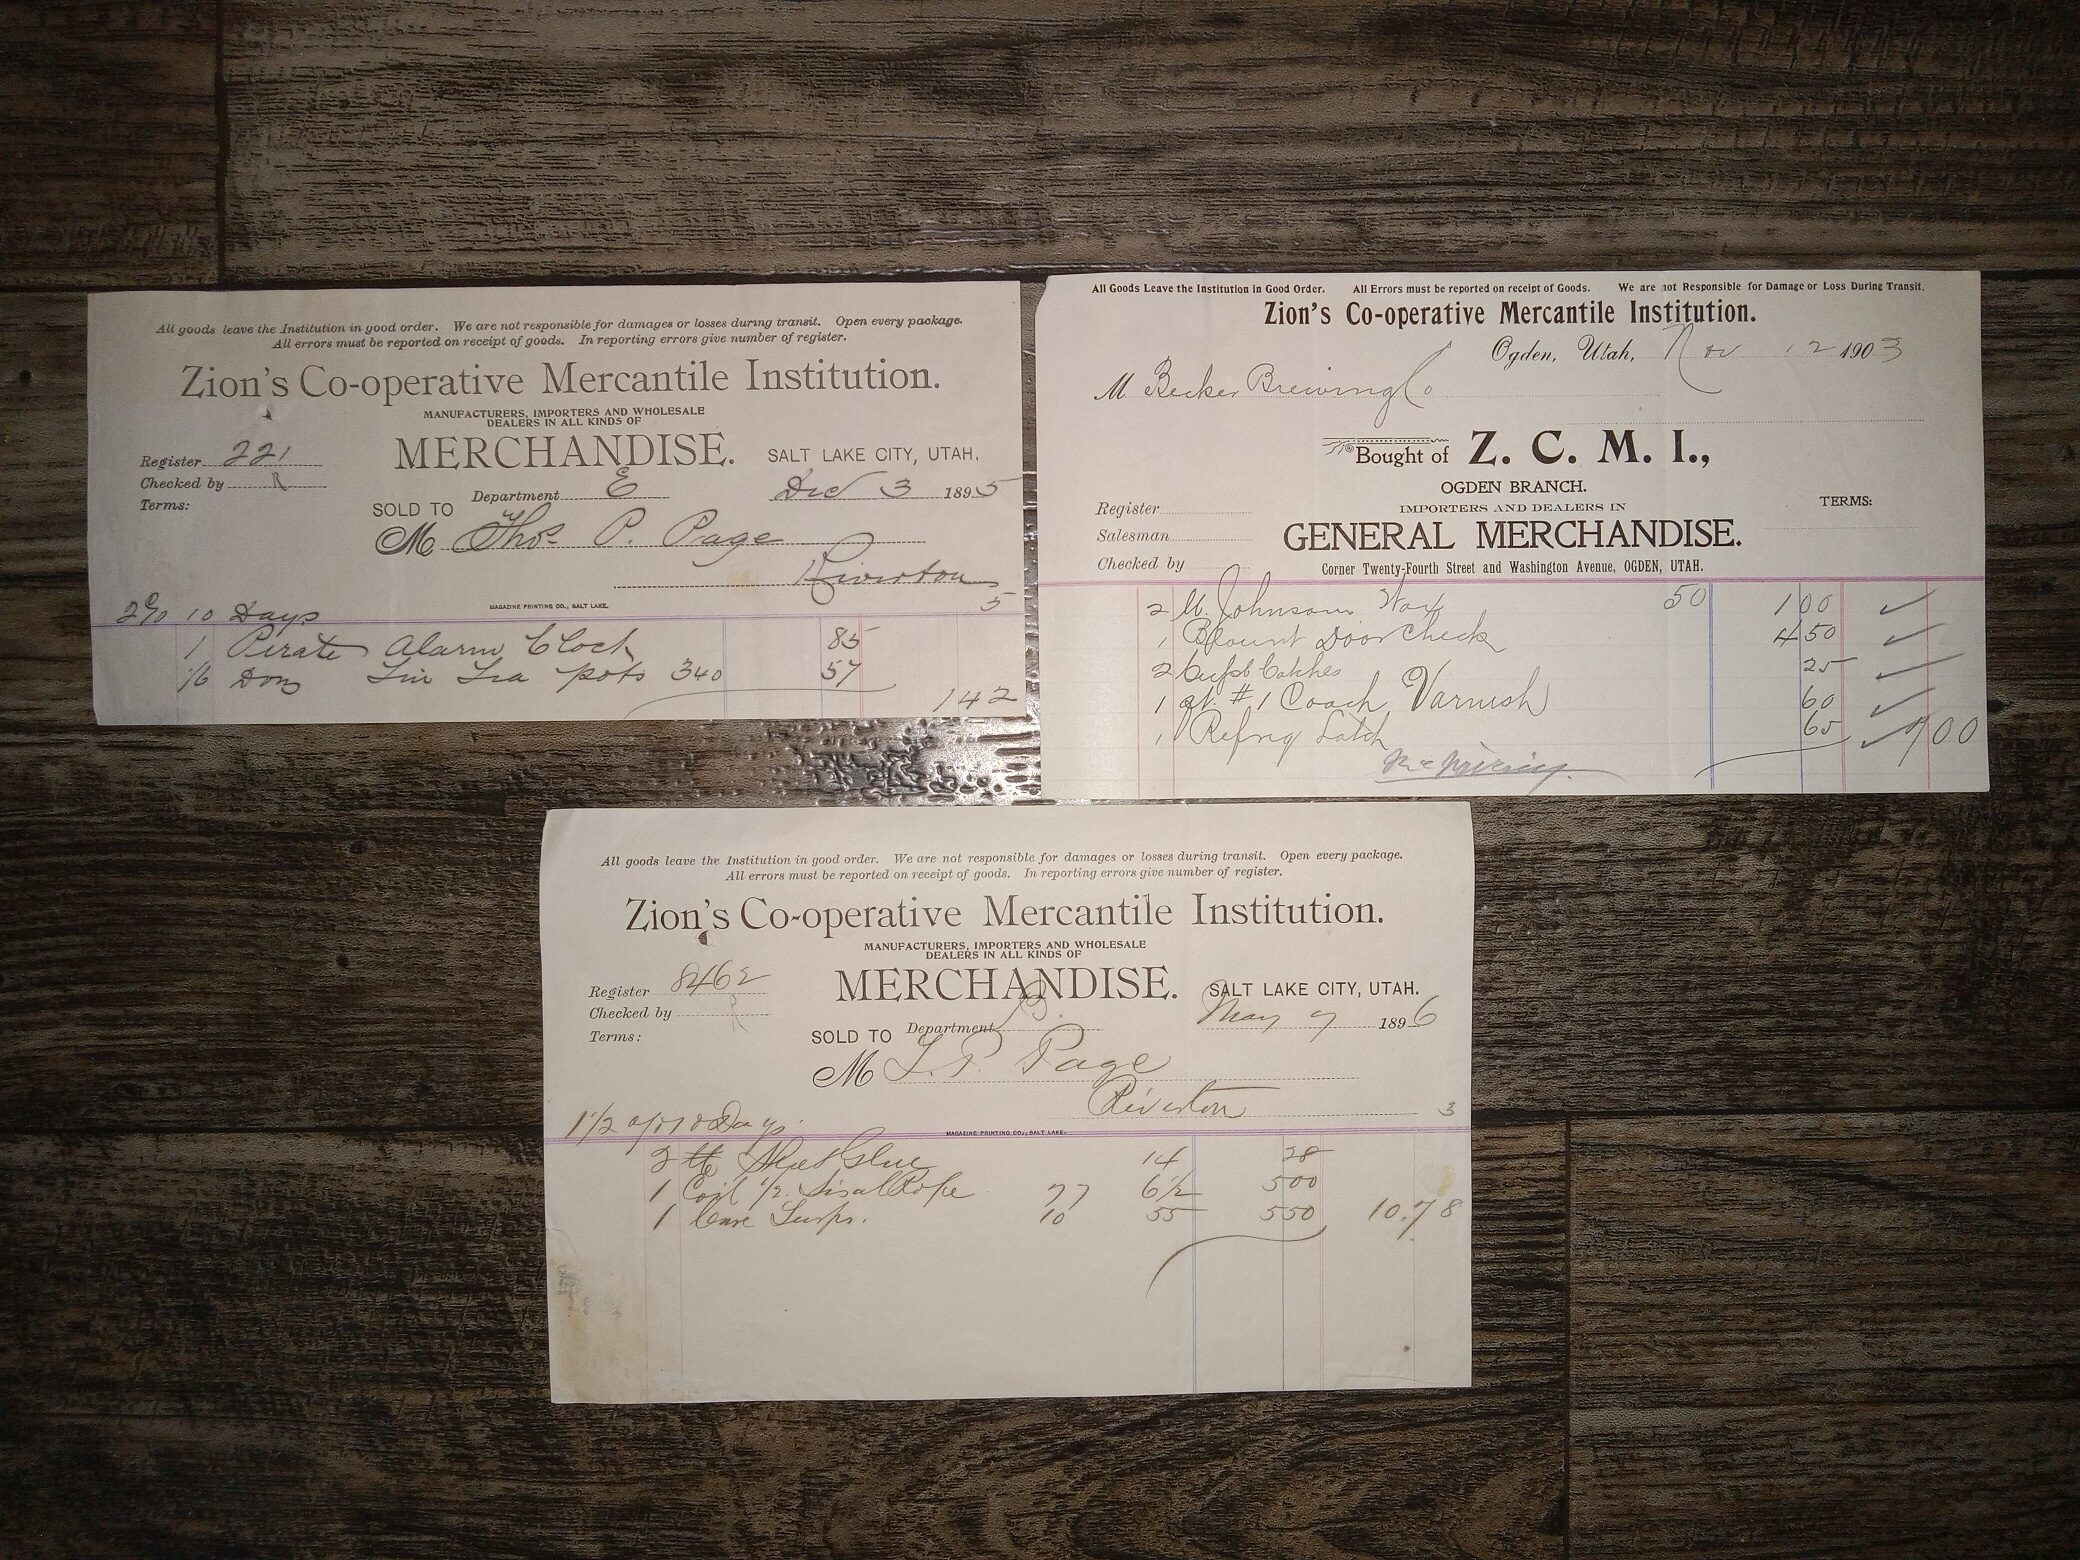 All goods leave the Institution in good order. We are not responsible for damages or losses during transit. Open every package.
All errors must be reported on receipt of goods. In reporting errors give number of register.
Zion's Co-operative Mercantile Institution.
MANUFACTURERS, IMPORTERS AND WHOLESALE
DEALERS IN ALL KINDS OF
MERCHANDISE.
SALT LAKE CITY, UTAH.
Register 221
Checked by R
Terms:
Department E
Dec 3 1895
SOLD TO
M Thos P. Page
Riverton
5
MAGAZINE PRINTING CO., SALT LAKE.
2% 10 Days
1 Pirate Alarm Clock 85
1/6 Doz Tin Tea pots 340 57
142
All Goods Leave the Institution in Good Order. All Errors must be reported on receipt of Goods. We are not Responsible for Damage or Loss During Transit.
Zion's Co-operative Mercantile Institution.
Ogden, Utah, Nov 12 1903
M Becker Brewing Co
Bought of Z. C. M. I.,
OGDEN BRANCH.
IMPORTERS AND DEALERS IN
GENERAL MERCHANDISE.
Corner Twenty-Fourth Street and Washington Avenue, OGDEN, UTAH.
Register
Salesman
Checked by
TERMS:
2 Johnsons Wax 50 1 00
1 Blount Door Check 4 50
2 Cupb Catches 25
1 qt. #1 Coach Varnish 60
1 Refrig Latch 65 7 00
All goods leave the Institution in good order. We are not responsible for damages or losses during transit. Open every package.
All errors must be reported on receipt of goods. In reporting errors give number of register.
Zion's Co-operative Mercantile Institution.
MANUFACTURERS, IMPORTERS AND WHOLESALE
DEALERS IN ALL KINDS OF
MERCHANDISE.
SALT LAKE CITY, UTAH.
Register 8462
Checked by
Terms:
Department B.
May 7 1896
SOLD TO
M T. P. Page
Riverton
3
MAGAZINE PRINTING CO., SALT LAKE.
1 1/2 % 10 Days
2 Glue 14 28
1 Coil 1/2 Sisal Rope 77 6 1/2 500
1 Case 10 55 550 10.78